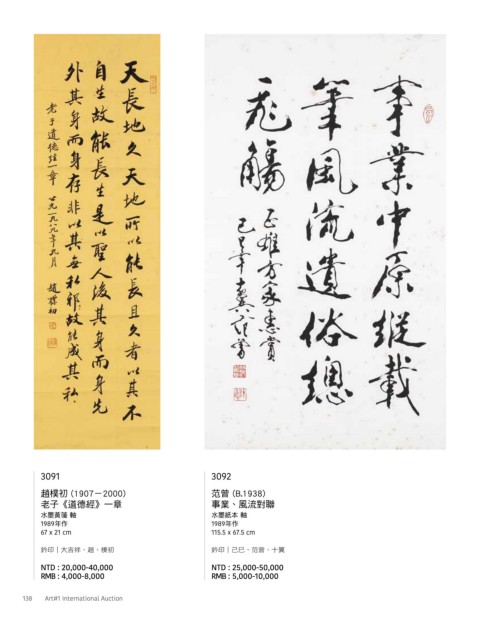 天長地久天地所以能長且久者以其不
自生故能長生是以聖人後其身而身先
外其身而身存非以其無私邪故能成其私
老子道德經一章
公元一九八九年九月
趙樸初
事業中原縱載
筆風流遺俗總
飛觴
正雄方家惠賞
己巳年十翼范曾
3091
趙樸初 (1907－2000)
老子《道德經》一章
水墨黃箋 軸
1989年作
67 x 21 cm
鈐印｜大吉祥、趙、樸初
NTD : 20,000-40,000
RMB : 4,000-8,000
3092
范曾 (B.1938)
事業、風流對聯
水墨紙本 軸
1989年作
115.5 x 67.5 cm
鈐印｜己巳、范曾、十翼
NTD : 25,000-50,000
RMB : 5,000-10,000
138 Art#1 International Auction